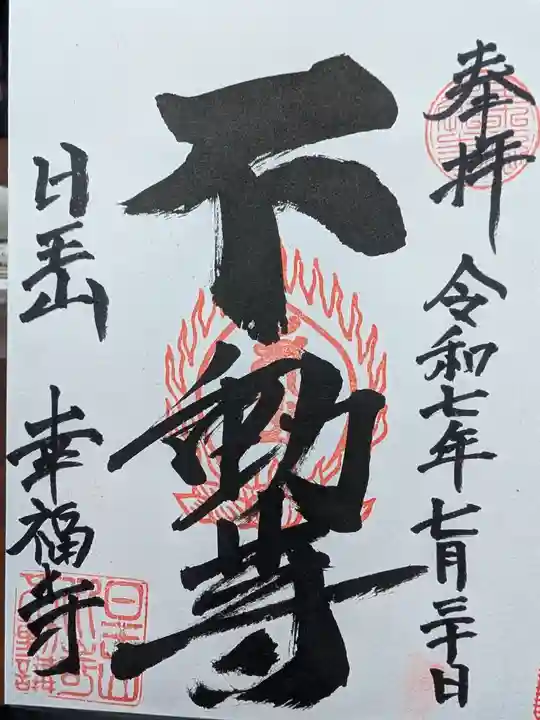 奉拝
令和七年七月三十日
不動尊
日玉山
幸福寺